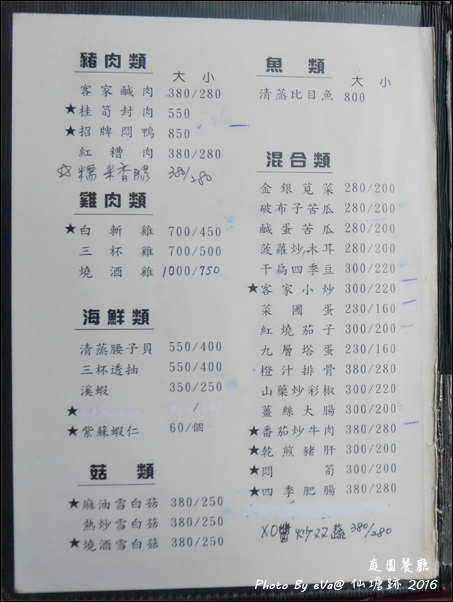 豬肉類
大 小
客家鹹肉 380/280
★桂筍封肉 550
★招牌悶鴨 850
紅糟肉 380/280
糯米香腸 380/280
雞肉類
★白斬雞 700/450
三杯雞 700/500
燒酒雞 1000/750
海鮮類
清蒸腰子貝 550/400
三杯透抽 550/400
溪蝦 350/250
★ /
★紫蘇蝦仁 60/個
菇類
★麻油雪白菇 380/250
熱炒雪白菇 380/250
★燒酒雪白菇 380/250
魚類
大 小
清蒸比目魚 800
混合類
金銀莧菜 280/200
破布子苦瓜 280/200
鹹蛋苦瓜 280/200
菠蘿炒木耳 280/200
干扁四季豆 300/220
★客家小炒 300/220
菜圃蛋 230/160
紅燒茄子 300/200
九層塔蛋 230/160
橙汁排骨 380/280
山藥炒彩椒 300/220
薑絲大腸 300/200
★番茄炒牛肉 380/280
★乾煎豬肝 300/200
★悶筍 300/200
★四季肥腸 380/280
XO醬炒双蔬 380/280
庭園餐廳
Photo By eVa@ 仙塘跡 2016